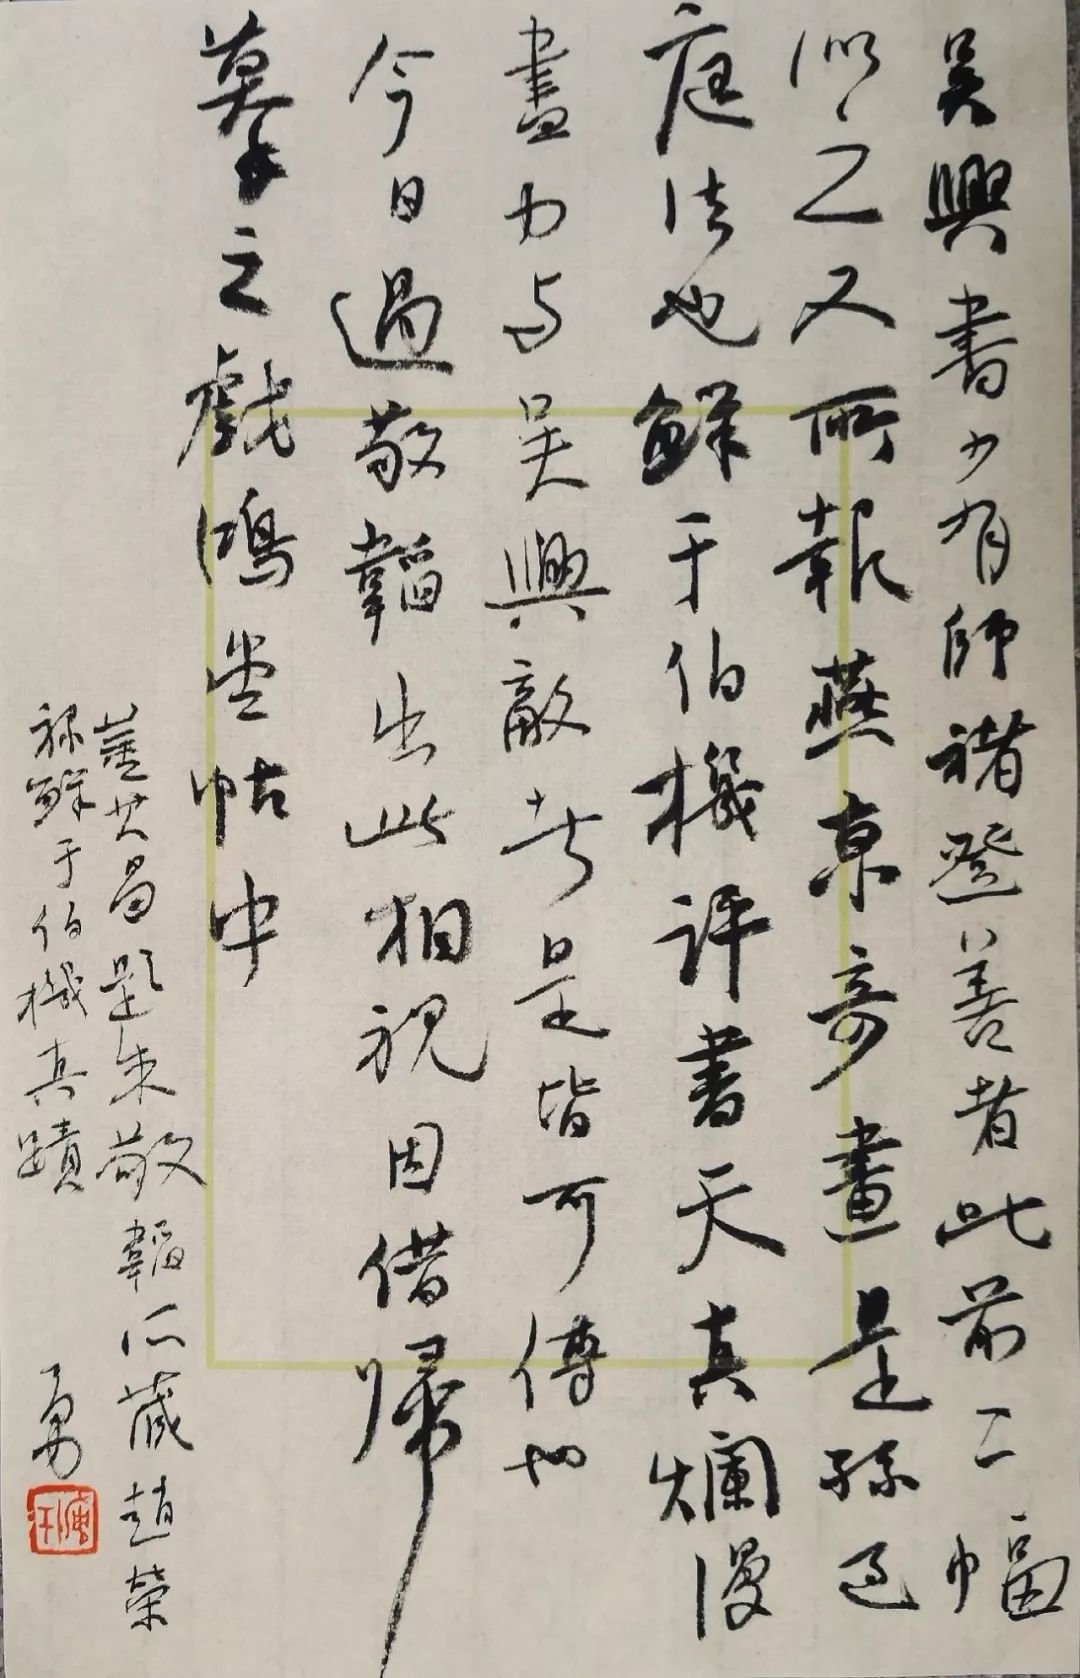 吳興書少有師褚登善者此前二幅
似之又所報燕京奇畫是孫過
庭法也鮮于伯機評書天真爛漫
盡力与吳興敵者是皆可傳也
今日過敬韜出此相視因借歸
摹之戲鴻堂帖中
董其昌題朱敬韜所藏趙榮
祿鮮于伯機真蹟
勇